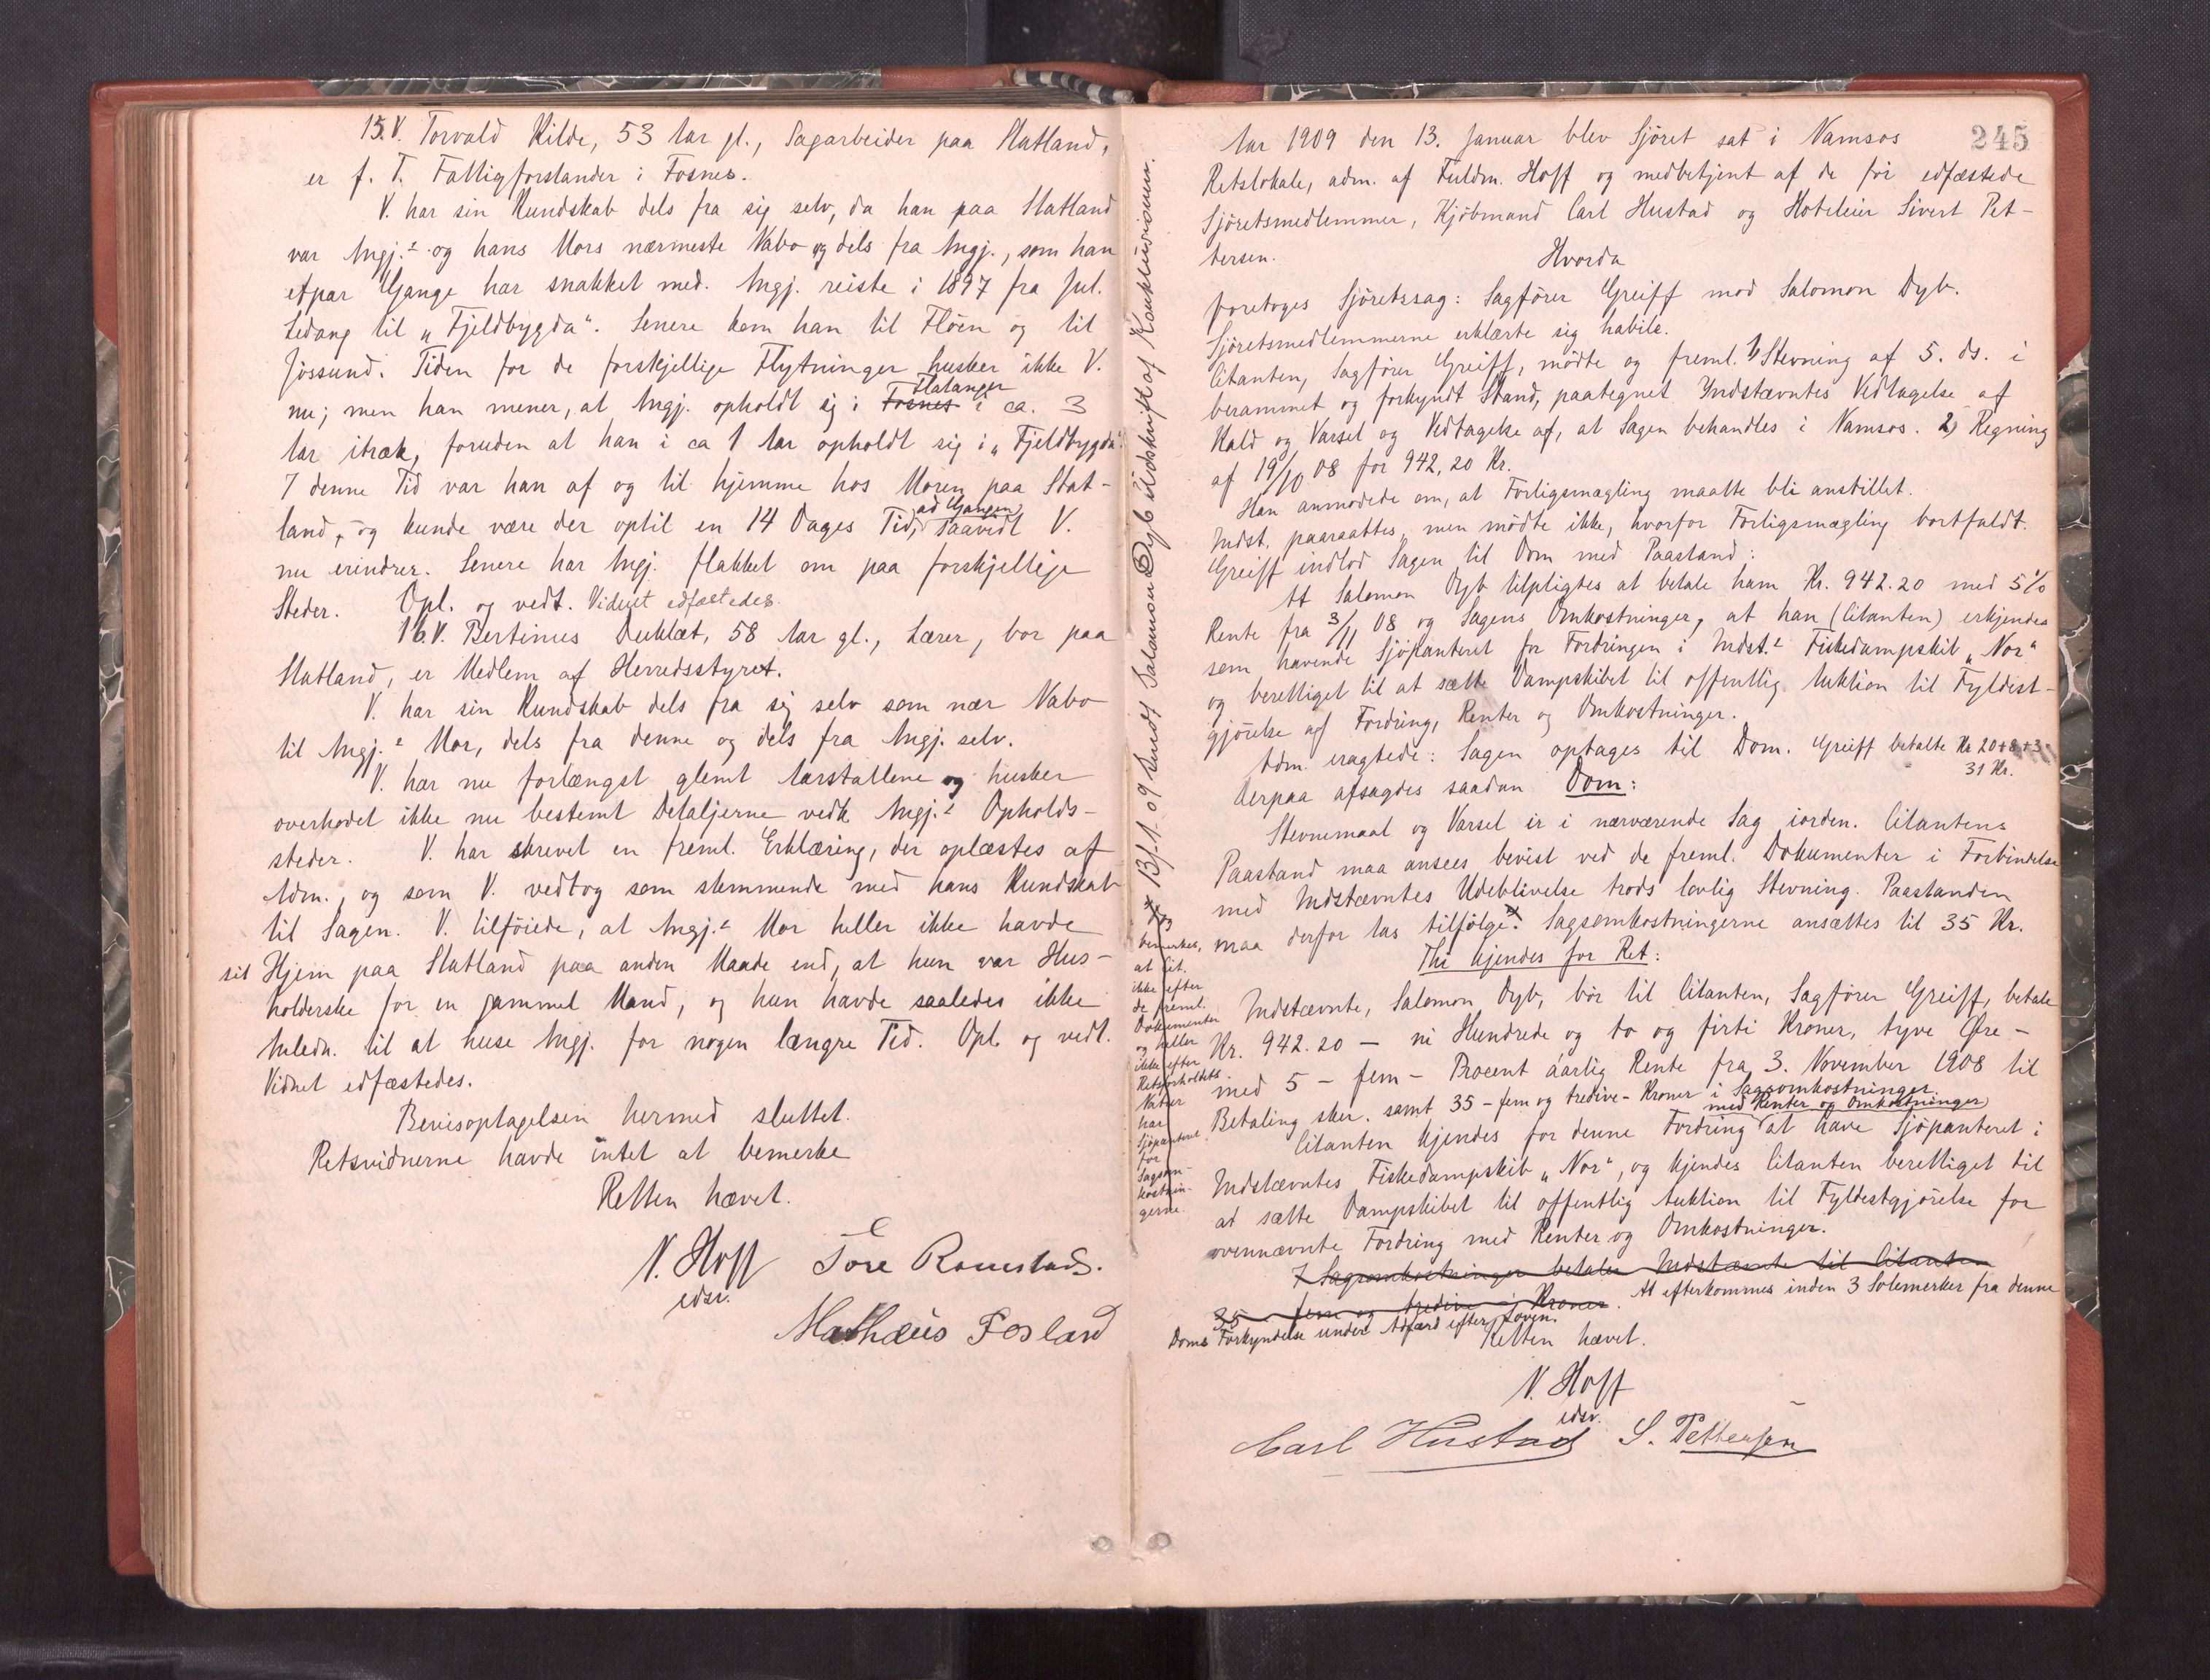 15.V. Torvald Kilde, 53 Aar gl., Sagarbeider paa Statland,
er f. T. Fattigforstander i Fosnes.
V. har sin Kundskab dels fra sig selv, da han paa Statland
var Angj.s og hans Mors nærmeste Nabo og dels fra Angj., som han
etpar Gange har snakket med. Angj. reiste i 1897 fra Jul.
Ledang til „Fjeldbygda“. Senere kom han til Fløen og til
Jössund. Tiden for de forskjellige Flytninger husker ikke V.
nu; men han mener, at Angj. opholdt sig i Fosnes Flatanger i ca. 3
Aar itræk, foruden at han i ca 1 Aar opholdt sig i „Fjeldbygda“.
I denne Tid var han af og til hjemme hos Moren paa Stat-
land, og kunde være der optil en 14 Dages Tid ad Gangen, saavidt V.
nu erindrer. Senere har Angj. flakket om paa forskjellige
Steder. Opl. og vedt. Vidnet edfæstedes.
16.V. Bertinus Duklæt, 58 Aar gl., Lærer, bor paa
Statland, er Medlem af Herredsstyret.
V. har sin Kundskab dels fra sig selv som nær Nabo
til Angj.s Mor, dels fra denne og dels fra Angj. selv.
V. har nu forlængst glemt Aarstallene og husker
overhodet ikke nu bestemt Detaljerne vedk. Angj.s Opholds-
steder. V. har skrevet en freml. Erklæring, der oplæstes af
Adm., og som V. vedtog som stemmende med hans Kundskab
til Sagen. V. tilföiede, at Angj.s Mor heller ikke havde
sit Hjem paa Statland paa anden Maade end, at hun var Hus-
holderske for en gammel Mand, og hun havde saaledes ikke
Anledn. til at huse Angj. for nogen længre Tid. Opl. og vedt.
Vidnet edfæstedes.
Bevisoptagelsen hermed sluttet.
Retsvidnerne havde intet at bemerke
Retten hævet.
N. Hoff Tore Romstad.
edsv.
Mathæus Fosland
* Bf. 1. og sendt Salomon Dyb Udskrift af Konklusionen.
og
bemerkes,
at Cit.
ikke efter
de freml.
Dokumenter
og heller
ikke efter
Retsforholdets
Natur
har
Sjöpanteret
for
Sagsom-
kostnin-
gerne.
245
Aar 1909 den 13. Januar blev Sjöret sat i Namsos
Retslokale, adm. af Fuldm. Hoff og medbetjent af de för edfæstede
Sjöretsmedlemmer, Kjöbmand Carl Hustad og Hoteleier Sivert Pet-
tersen.
Hvorda
foretoges Sjöretssag: Sagförer Greiff mod Salomon Dyb.
Sjöretsmedlemmerne erklærte sig habile.
Citanten, Sagförer Greiff, mödte og freml. 1) Stevning af 5. ds. i
berammet og forkyndt Stand, paategnet Indstævntes Vedtagelse af
Kald og Varsel og Vedtagelse af, at Sagen behandles i Namsos. 2) Regning
af 19/10 08 for 942,20 Kr.
Han anmodede om, at Forligsmægling maatte bli anstillet.
Indst. paaraabtes, men mödte ikke, hvorfor Forligsmægling bortfaldt.
Greiff indlod Sagen til Dom med Paastand:
At Salomon Dyb tilpligtes at betale ham Kr. 942.20 med 5%
Rente fra 3/11 08 og Sagens Omkostninger, at han (Citanten) erkjendes
som havende Sjöpanteret for Fordringen i Indst.s Fiskedampskib „Nor“
og berettiget til at sætte Dampskibet til offentlig Auktion til Fyldest-
gjörelse af Fordring, Renter og Omkostninger.
Adm. eragtede: Sagen optages til Dom. Greiff betalte Kr 20+8+3
31 Kr.
Derpaa afsagdes saadan Dom:
Stevnemaal og Varsel er i nærværende Sag iorden. Citantens
Paastand maa ansees bevist ved de freml. Dokumenter i Forbindelse
med Indstævntes Udeblivelse trods lovlig Stevning. Paastanden
maa derfor tas tilfölge.* Sagsomkostningerne ansættes til 35 Kr.
Thi kjendes for Ret:
Indstævnte, Salomon Dyb, bör til Citanten, Sagförer Greiff, betale
Kr. 942.20 – ni Hundrede og to og firti Kroner, tyve Øre –
med 5 – fem – Procent aarlig Rente fra 3. November 1908 til
Betaling sker. samt 35 – fem og tredive – Kroner i Sagsomkostninger.
Citanten kjendes for denne Fordring med Renter og Omkostninger at have Sjöpanteret i
Indstævntes Fiskedampskib „Nor“, og kjendes Citanten berettiget til
at sætte Dampskibet til offentlig Auktion til Fyldestgjörelse for
ovennævnte Fordring med Renter og Omkostninger.
I Sagsomkostninger betaler Indstævnte til Citanten
35 – fem og tredive – Kroner. At efterkommes inden 3 Solemerker fra denne
Doms Forkyndelse under Adfærd efter Loven.
Retten hævet.
N. Hoff
edsv.
Carl Hustad S. Pettersen